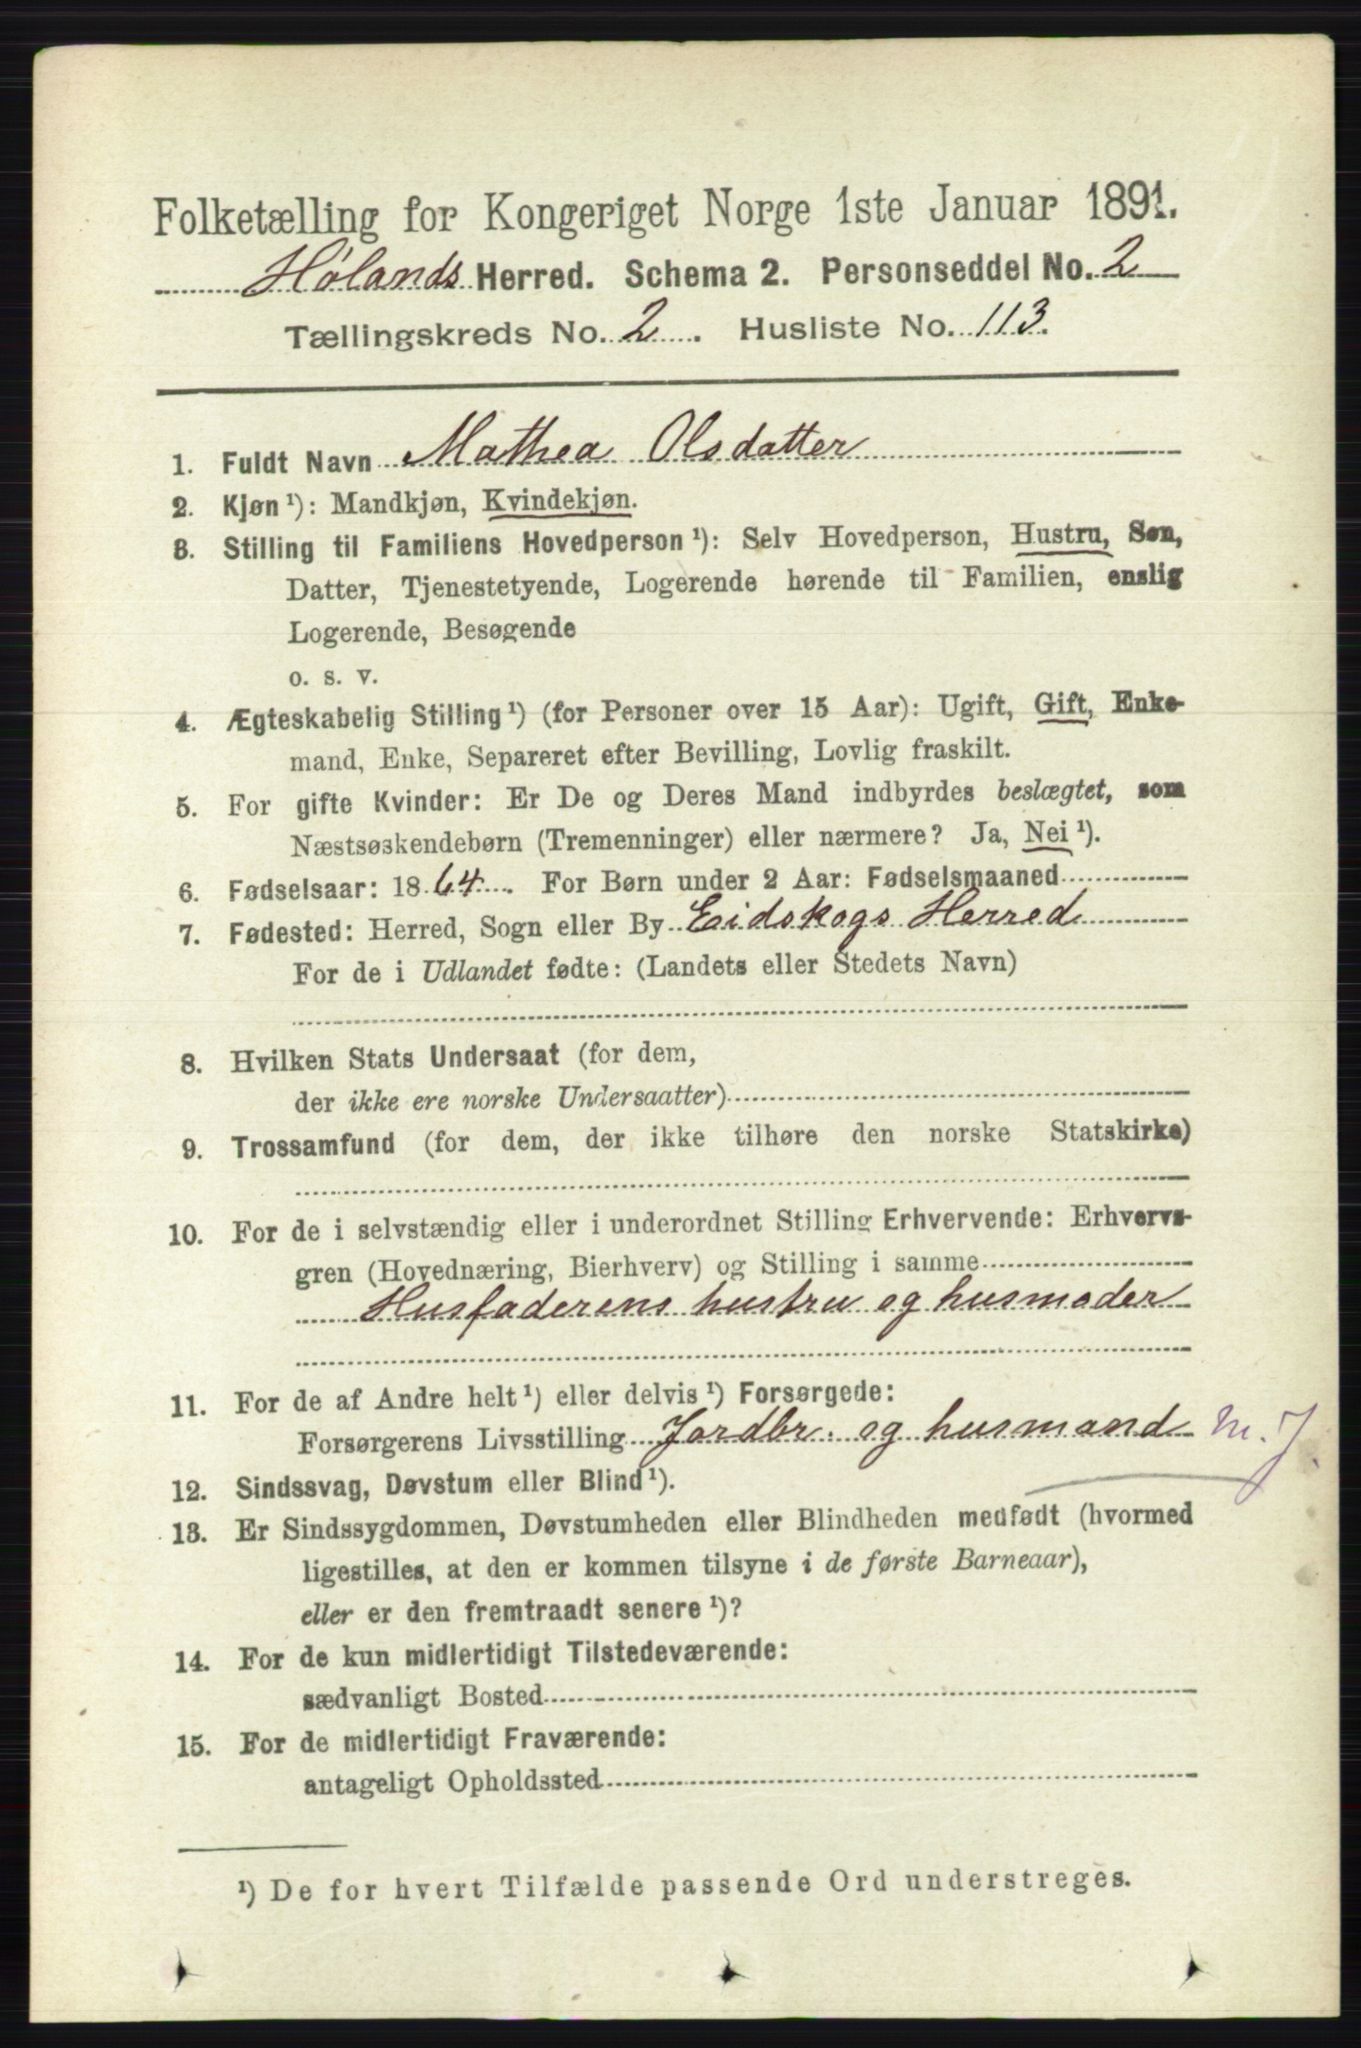 Folketælling for Kongeriget Norge 1ste Januar 1891.
Hølands Herred. Schema 2. Personseddel No. 2
Tællingskreds No. 2. Husliste No. 113.
1. Fuldt Navn Mathea Olsdatter
2. Kjøn¹): Mandkjøn, Kvindekjøn.
3. Stilling til Familiens Hovedperson¹): Selv Hovedperson, Hustru, Søn,
Datter, Tjenestetyende, Logerende hørende til Familien, enslig
Logerende, Besøgende
o. s. v.
4. Ægteskabelig Stilling¹) (for Personer over 15 Aar): Ugift, Gift, Enke-
mand, Enke, Separeret efter Bevilling, Lovlig fraskilt.
5. For gifte Kvinder: Er De og Deres Mand indbyrdes beslægtet, som
Næstsøskendebørn (Tremenninger) eller nærmere? Ja, Nei¹).
6. Fødselsaar: 1864. For Børn under 2 Aar: Fødselsmaaned
7. Fødested: Herred, Sogn eller By Eidskogs Herred
For de i Udlandet fødte: (Landets eller Stedets Navn)
8. Hvilken Stats Undersaat (for dem,
der ikke ere norske Undersaatter)
9. Trossamfund (for dem, der ikke tilhøre den norske Statskirke)
10. For de i selvstændig eller i underordnet Stilling Erhvervende: Erhvervs-
gren (Hovednæring, Bierhverv) og Stilling i samme
Husfaderens hustru og husmoder
11. For de af Andre helt¹) eller delvis¹) Forsørgede:
Forsørgerens Livsstilling Jordbr. og husmand m. J.
12. Sindssvag, Døvstum eller Blind¹).
13. Er Sindssygdommen, Døvstumheden eller Blindheden medfødt (hvormed
ligestilles, at den er kommen tilsyne i de første Barneaar),
eller er den fremtraadt senere¹)?
14. For de kun midlertidigt Tilstedeværende:
sædvanligt Bosted
15. For de midlertidigt Fraværende:
antageligt Opholdssted
¹) De for hvert Tilfælde passende Ord understreges.